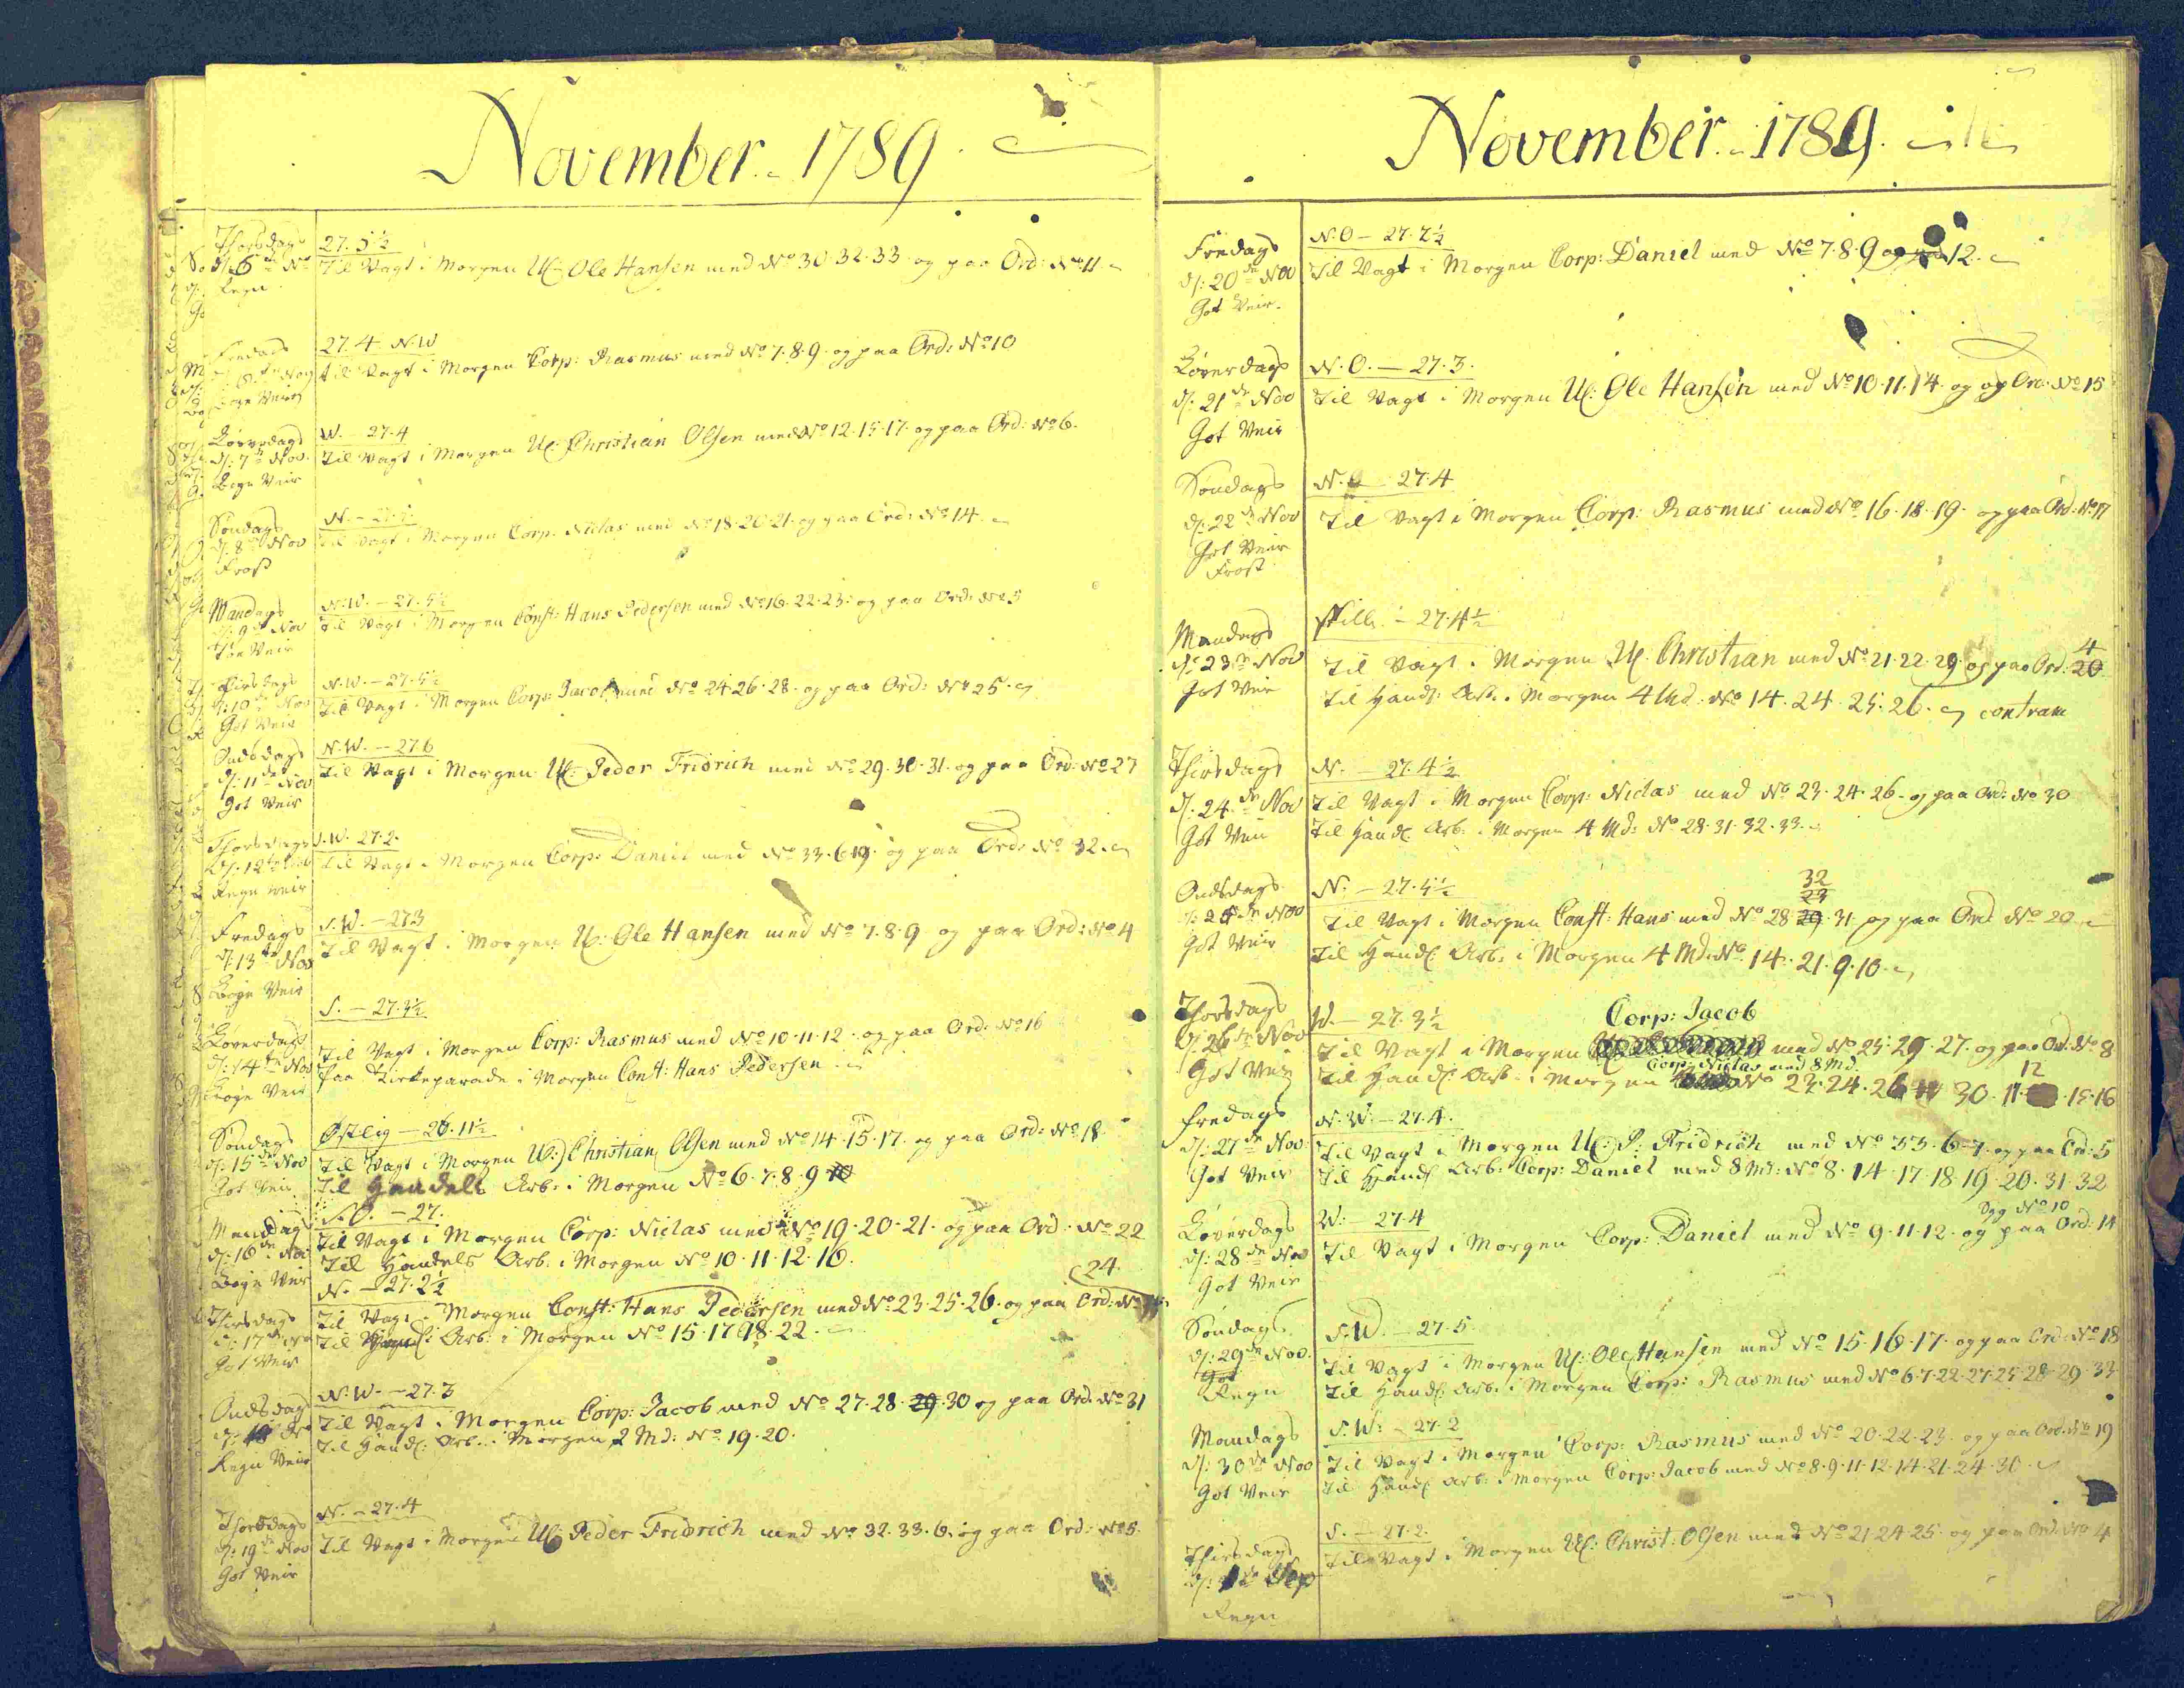 November. 1789.
Thorsdags
d: 5te No
Regn
27. 5 1/2
Til Vagt i Morgen U: Ole Hansen med No 30. 32. 33. og paa Ord: No 11.
Fredags
Nov
Veir
27. 4 N.W
Til Vagt i Morgen Corp: Rasmus med No 7. 8. 9. og paa Ord: No 10
Löverdags
d: 7de Nov.
Veir
W. 27. 4
Til Vagt i Morgen U: Christian Olsen med No 12. 15. 17. og paa Ord: No 6.
Söndags
d: 8de Nov
Frost
N. -
Til Vagt i Morgen Corp. Niclas med No 18. 20. 21. og paa Ord: No 14.
Mandags
d: 9de Nov
Töe Veir
N.W. - 27. 5 1/2
Til Vagt i Morgen Const: Hans Pedersen med No 16. 22. 23. og paa Ord: No 5
Thirsdags
d: 10de Nov
Got Veir
N.W. - 27. 5 1/2
Til Vagt i Morgen Corp: Jacob med No 24. 26. 28. og paa Ord: No 25.
Onsdags
d: 11de Nov
Got Veir
N.W. - 27. 6
Til Vagt i Morgen U: Peder Fridrich med No 29. 30. 31. og paa Ord: No 27
Thorsdags
d: 12te Nov
Regn Veir
S.W. 27. 2
Til Vagt i Morgen Corp: Daniel med No 33. 6. og paa Ord: No 32.
Fredags
d: 13te Nov
Veir
S.W. - 27. 3
Til Vagt i Morgen U: Ole Hansen med No 7. 8. 9 og paa Ord: No 4
Löverdags
d: 14te Nov
Veir
S. - 27. 3 1/2
Til Vagt i Morgen Corp: Rasmus med No 10. 11. 12. og paa Ord: No 16
Paa Kirkeparade i Morgen Const: Hans Pedersen
Söndags
d: 15de Nov
Got Veir
Østlig - 26. 11 1/2
Til Vagt i Morgen U: Christian Olsen med No 14. 15. 17. og paa Ord: No 18.
Til Handels Arb. i Morgen No 6. 7. 8. 9 10
Mandag
d: 16de Nov
Veir
S.O. - 27.
Til Vagt i Morgen Corp: Niclas med No 19. 20. 21. og paa Ord. No 22
Til Handels Arb. i Morgen No 10. 11. 12. 16.
Thirsdags
d: 17de Nov
Got Veir
N. - 27. 2 1/2
24.
Til Vagt i Morgen Const: Hans Pedersen med No 23. 25. 26. og paa Ord: No
Til Handl: Arb. i Morgen No 15. 17 18. 22.
Onsdags
d: 18 No
Regn Veir
N.W. - 27. 3
Til Vagt i Morgen Corp: Jacob med No 27. 28. 29. 30 og paa Ord. No 31
Til Handl: Arb. i Morgen 2 Md: No 19. 20.
Thorsdags
d: 19de Nov
Got Veir
N. - 27. 4
Til Vagt i Morgen U: Peder Fridrich med No 32. 33. 6. og paa Ord: No 5.
November. 1789.
Fredags
d: 20de Nov
Got Veir.
N.O - 27. 2 1/2
Til Vagt i Morgen Corp: Daniel med No 7. 8. 9 og paa 12.
Löverdags
d: 21de Nov
Got Veir
N.O. - 27. 3.
Til Vagt i Morgen U: Ole Hansen med No 10. 11. 14. og og Ord. No 15
Söndags
d: 22de Nov
Got Veir
Frost
N.O 27. 4
Til Vagt i Morgen Corp: Rasmus med No 16. 18. 19. og paa Ord. No 17
Mandags
d: 23de Nov
Got Veir
stille. - 27. 4 1/2
4
Til Vagt i Morgen U: Christian med No 21. 22. 29 og paa Ord: 20.
Til Handl: Arb. i Morgen 4 Md. No 14. 24. 25. 26. contram
Thirsdags
d: 24de Nov
Got Veir
N. - 27. 4 1/2
Til Vagt i Morgen Corp: Niclas med No 23. 24. 26. og paa Ord: No 30
Til Handl: Arb. i Morgen 4 Md: No 28. 31. 32. 33.
Onsdags
d: 25de Nov
Got Veir
N. - 27. 5 1/2
32
Til Vagt i Morgen Const: Hans med No 28. 29. 31. og paa Ord No 20
Til Handl: Arb. i Morgen 4 Md. No 14. 21. 9. 10.
Thorsdags
d: 26te Nov
Got Veir
W. - 27. 3 1/2
Corp: Jacob
Til Vagt i Morgen med No 25. 29. 27. og paa Ord. No 8
Corp: Niclas med 8 Md. 12
Til Handl: Arb. i Morgen No 23. 24. 26 30. 11. 15. 16
Fredags
d: 27de Nov.
Got Veir
N.W. - 27. 4.
Til Vagt i Morgen U: P: Fridrich med No 33. 6. 7. og paa Ord: 5
Til Handl: Arb. Corp: Daniel med 8 Md. No 8. 14. 17. 18. 19. 20. 31. 32
Löverdags
d: 28de Nov
Got Veir
W. - 27. 4
Syg No 10
Til Vagt i Morgen Corp: Daniel med No 9. 11. 12. og paa Ord: 14
Söndags
d: 29de Nov.
Got
Regn
S.W. - 27. 5.
Til Vagt i Morgen U: Ole Hansen med No 15. 16. 17. og paa Ord: No 18
Til Handl: Arb. i Morgen Corp: Rasmus med No 6. 7. 22. 27. 25. 28. 29. 33
Mandags
d: 30de Nov
Got Veir
S.W: - 27. 2
Til Vagt i Morgen Corp: Rasmus med No 20. 22. 23. og paa Ord. No 19
Til Handl: Arb. i Morgen Corp: Jacob med No 8. 9. 11. 12. 14. 21. 24. 30.
Thirsdags
d: 1te
Regn
S. - 27. 2.
Til Vagt i Morgen U: Christ: Olsen med No 21. 24. 25. og paa Ord. No 4